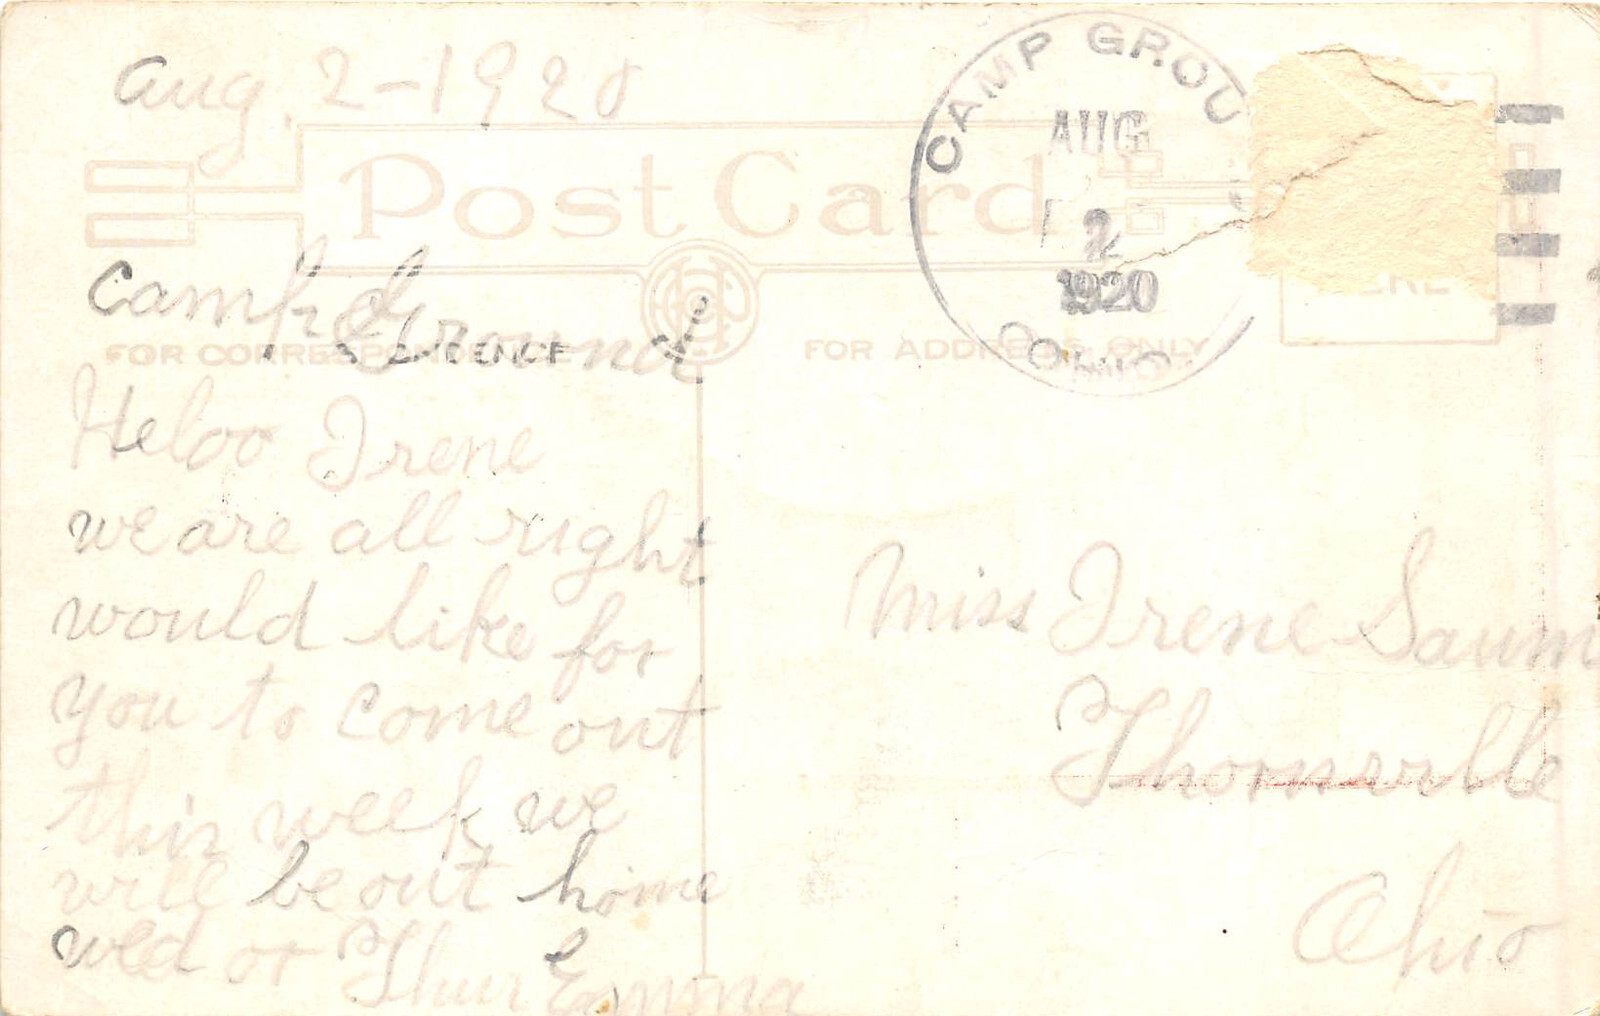 Aug. 2-1920
Post Card
CAMP GROU
AUG
2
1920
OHIO
Camp Ground
FOR CORRESPONDENCE
FOR ADDRESS ONLY
Heloo Irene
we are all right
would like for
you to come out
this week we
will be out home
wed or Thur Emma
Miss Irene Saum
Thornville
Ohio